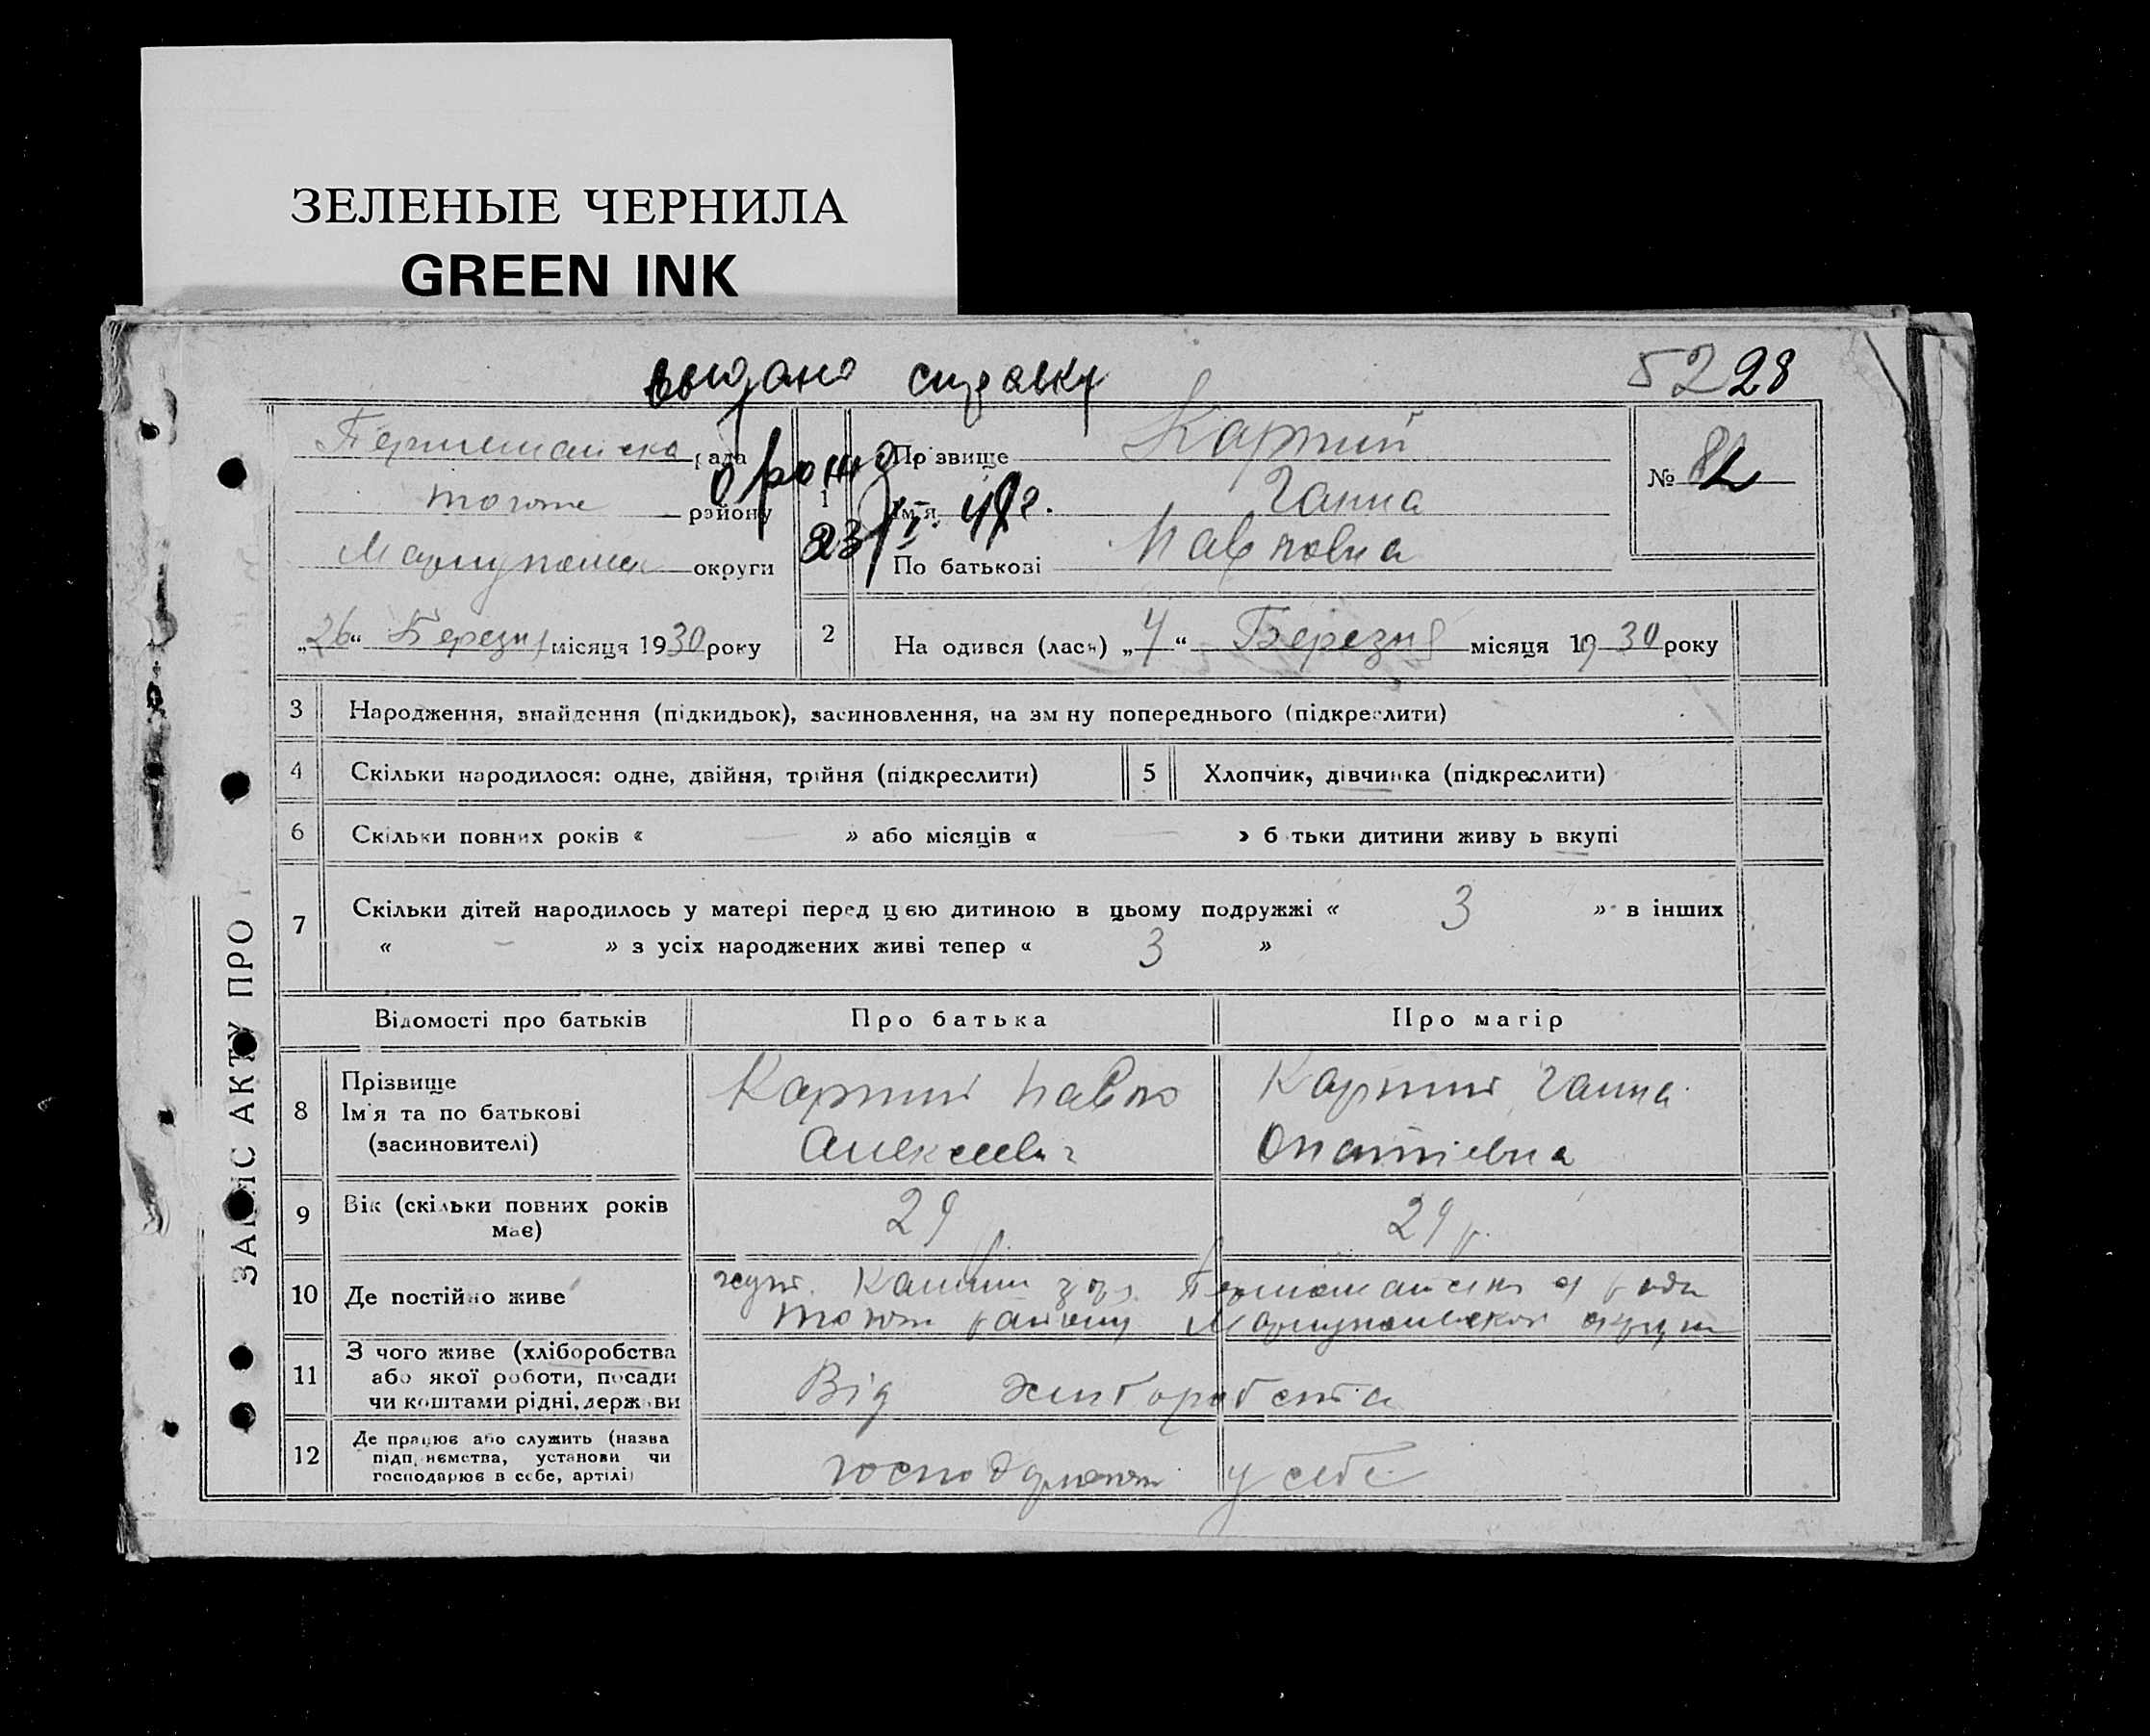 ЗЕЛЕНЫЕ ЧЕРНИЛА
GREEN INK
выдано справку
о рожд.
23/I 48г.
52 28
рада
того району
округи
„26“ Березня місяця 1930 року
1
Прізвище
Ім'я Ганна
По батькові Павловна
№ 82
2 На одився (лась) „4“ Березня місяця 1930 року
3 Народження, знайдення (підкидьок), засиновлення, на зм ну попереднього (підкреслити)
4 Скільки народилося: одне, двійня, трійня (підкреслити)
5 Хлопчик, дівчинка (підкреслити)
6 Скільки повних років « — » або місяців « — » б тьки дитини живу ь вкупі
7 Скільки дітей народилось у матері перед цією дитиною в цьому подружжі « 3 » в інших
« – » з усіх народжених живі тепер « 3 »
Відомості про батьків
Про батька
Про матір
8 Прізвище
Ім'я та по батькові
(засиновителі)
Павло
Алексеевич
Ганна
9 Вік (скільки повних років
має)
29
29 р.
10 Де постійно живе
11 З чого живе (хліборобства
або якої роботи, посади
чи коштами рідні, держави
Від хліборобства
12 Де працює або служить (назва
підп нємства, установи чи
господарює в себе, артілі)
у себе
ЗАПИС АКТУ ПРО